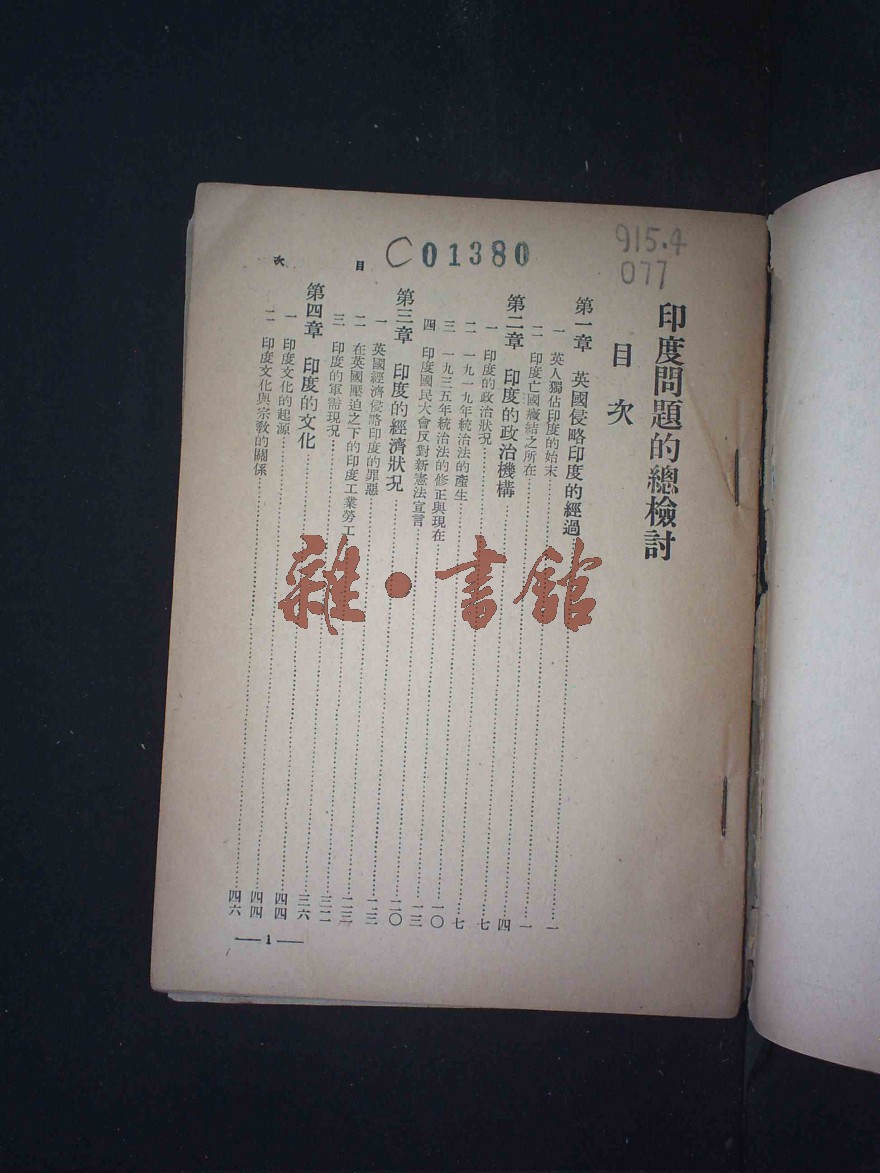 915.4
077
C 01380
印度問題的總檢討
目次
第一章 英國侵略印度的經過……一
一 英人獨佔印度的始末……一
二 印度亡國癥結之所在……四
第二章 印度的政治機構……七
一 印度的政治狀況……七
二 一九一九年統治法的產生……一〇
三 一九三五年統治法的修正與現在……一三
四 印度國民大會反對新憲法宣言……二〇
第三章 印度的經濟狀況……二三
一 英國經濟侵略印度的罪惡……二三
二 在英國壓迫之下的印度工業勞工……三二
三 印度的軍需現況……三六
第四章 印度的文化……四四
一 印度文化的起源……四四
二 印度文化與宗教的關係……四六
目次
—1—
雜·書館